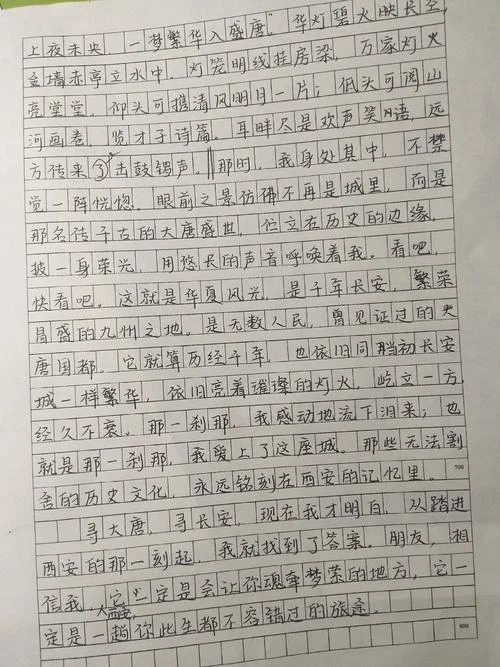 上夜未央，一梦繁华入盛唐。”华灯碧火映长空，
金墙赤亭立水中。灯笼明线挂房梁，万家灯火
亮堂堂。仰头可携清风明月一片；低头可阅山
河画卷，览才子诗篇。耳畔尽是欢声笑语，远
方传来了击鼓锣声。那时，我身处其中，不禁
觉一阵恍惚。眼前之景仿佛不再是城里，而是
那名传千古的大唐盛世，伫立在历史的边缘，
披一身荣光，用悠长的声音呼唤着我。看吧，
快看吧。这就是华夏风光，是千年长安，繁荣
昌盛的九州之地。是无数人民，曾见证过的大
唐国都。它就算历经千年，也依旧同当初长安
城一样繁华，依旧亮着璀璨的灯火，屹立一方，
经久不衰。那一刹那，我感动地流下泪来；也
就是那一刹那，我爱上了这座城。那些无法割
舍的历史文化，永远铭刻在西安的记忆里。
700
寻大唐，寻长安，现在我才明白，从踏进
西安的那一刻起，我就找到了答案。朋友，相
信我，它一定是会让你魂牵梦萦的地方，它一
定是一趟你此生都不容错过的旅途。
800